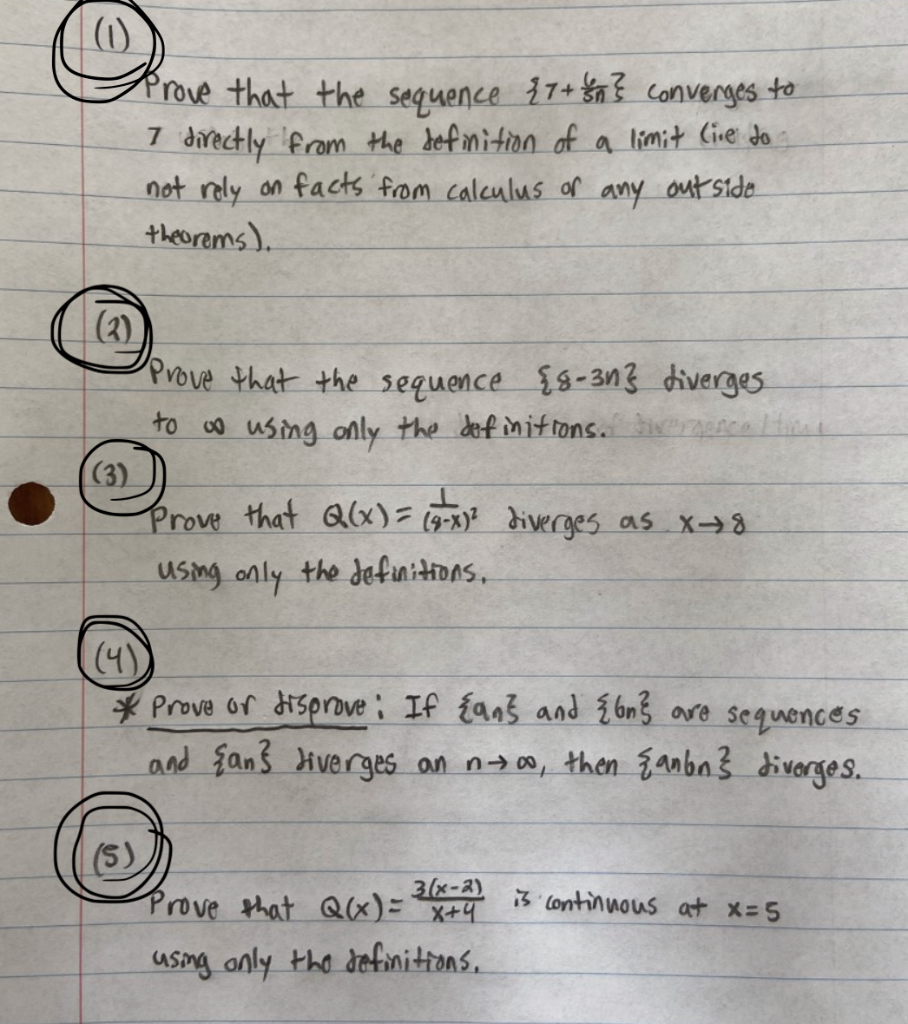 (1)
Prove that the sequence {7+6/5n} converges to
7 directly from the definition of a limit (i.e do
not rely on facts from calculus or any outside
theorems).
(2)
Prove that the sequence {8-3n} diverges
to ∞ using only the definitions.
(3)
Prove that Q(x)= 1/(8-x)² diverges as x→8
using only the definitions.
(4)
* Prove or disprove: If {an} and {bn} are sequences
and {an} diverges an n→∞, then {anbn} diverges.
(5)
Prove that Q(x)= 3(x-2)/x+4 is continuous at x=5
using only the definitions.